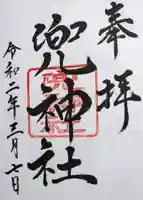 奉拝
兜神社
令和二年三月七日